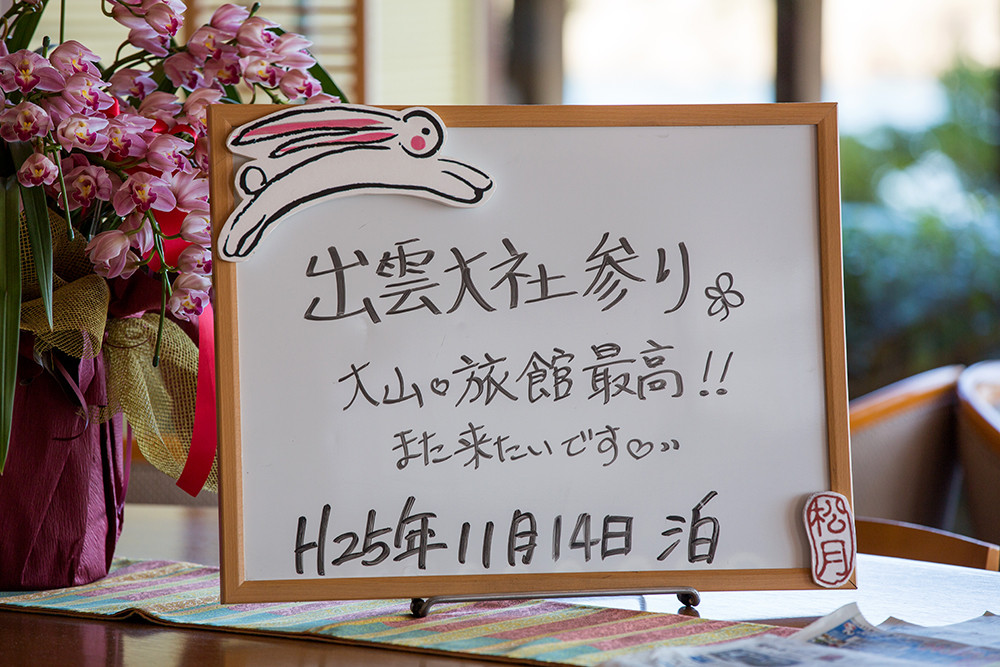 出雲大社参り。
大山。旅館最高!!
また来たいです♡〃
H25年11月14日 泊
松月